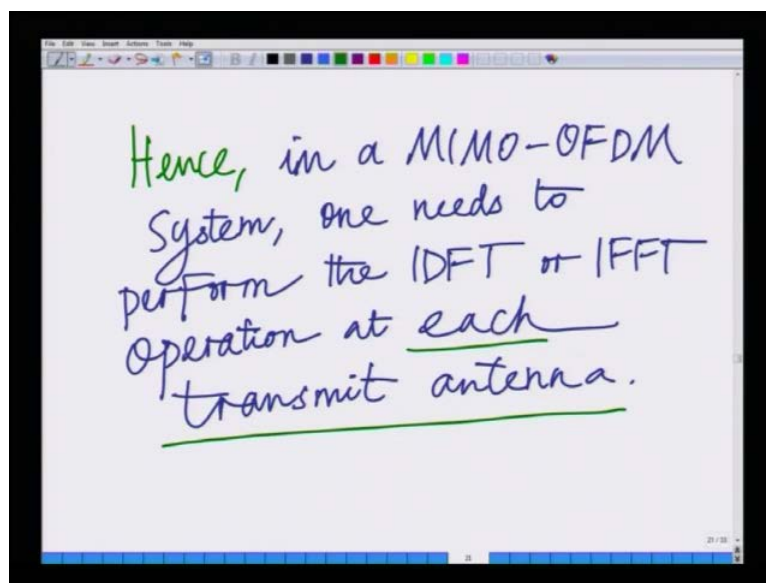 File Edit View Insert Actions Tools Help
Hence, in a MIMO-OFDM
System, one needs to
perform the IDFT or IFFT
operation at each
transmit antenna.
21